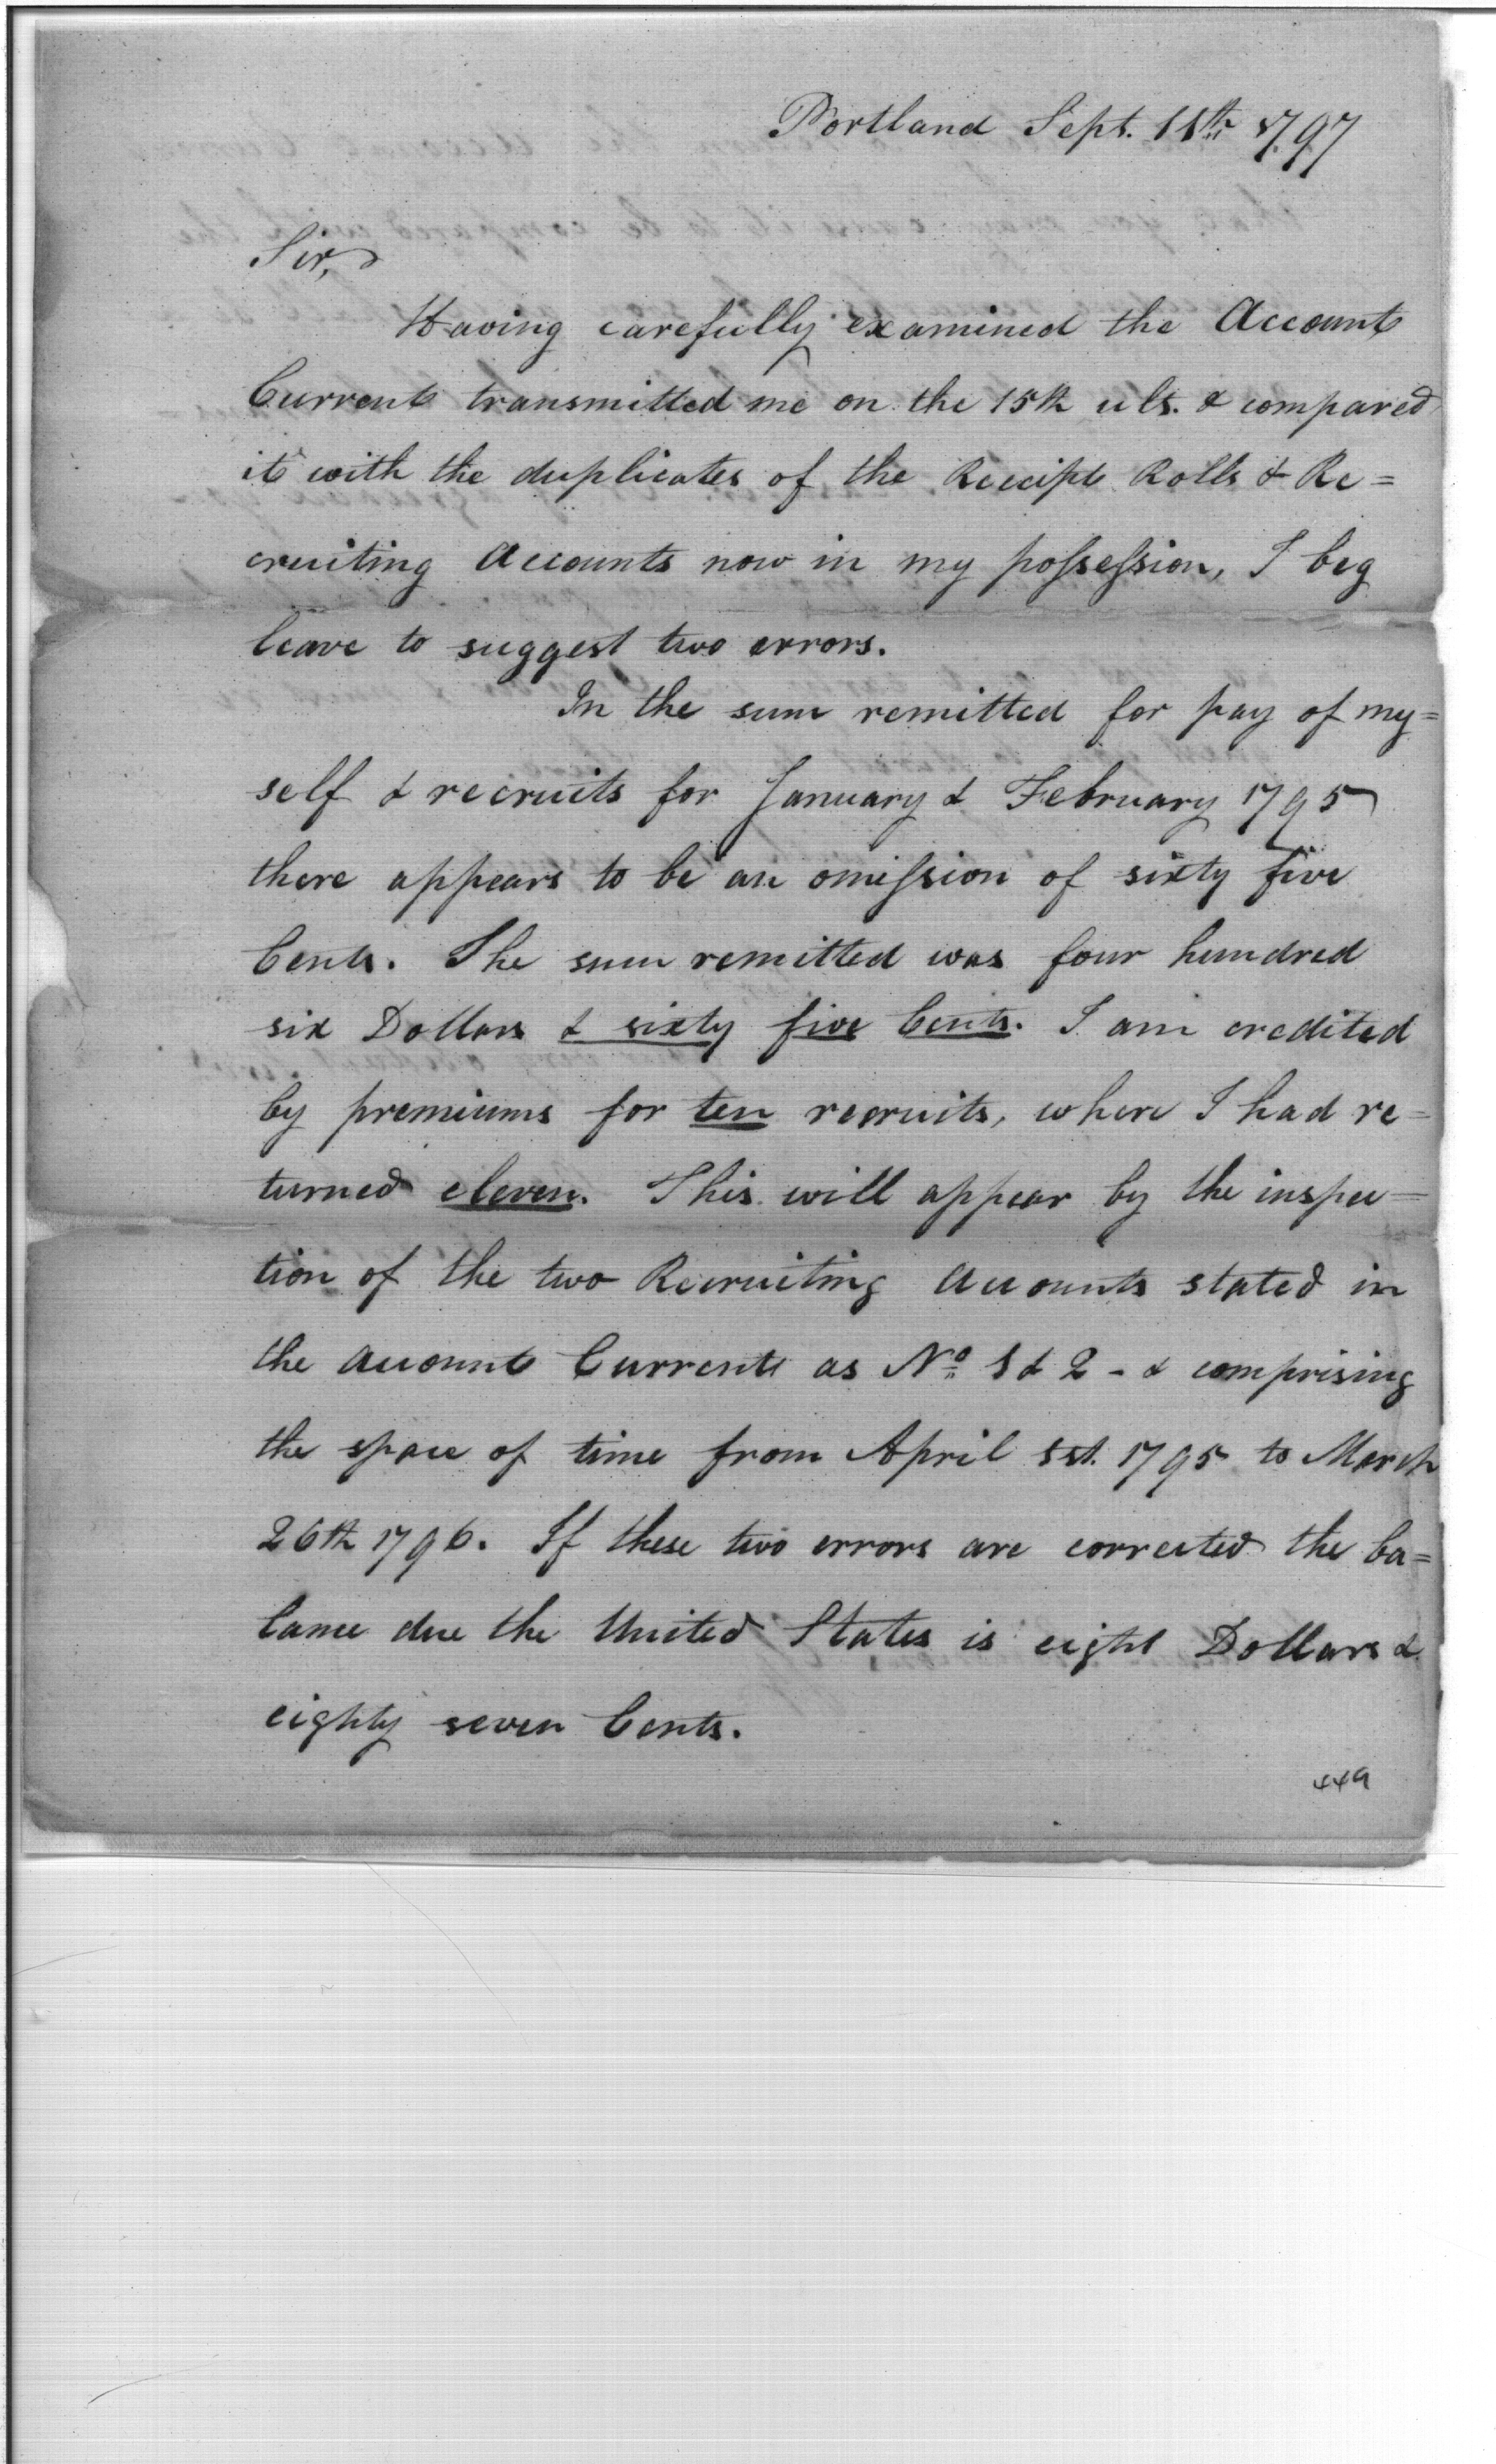 Portland Sept. 11th 1797
Sir,
Having carefully examined the Account
Current transmitted me on the 15th ult. & compared
it with the duplicates of the Receipt Rolls & Re=
cruiting Accounts now in my poſseſsion, I beg
leave to suggest two errors.
In the sum remitted for pay of my=
self & recruits for January & February 1795
there appears to be an omiſsion of sixty five
Cents. The sum remitted was four hundred
six Dollars & sixty five Cents. I am credited
by premiums for ten recruits, where I had re=
turned eleven. This will appear by the inspec=
tion of the two Recruiting Accounts stated in
the Account Current as No 1 & 2 - & comprising
the space of time from April 1st. 1795 to March
26th 1796. If these two errors are corrected the ba=
lance due the United States is eight Dollars &
eighty seven Cents.
449